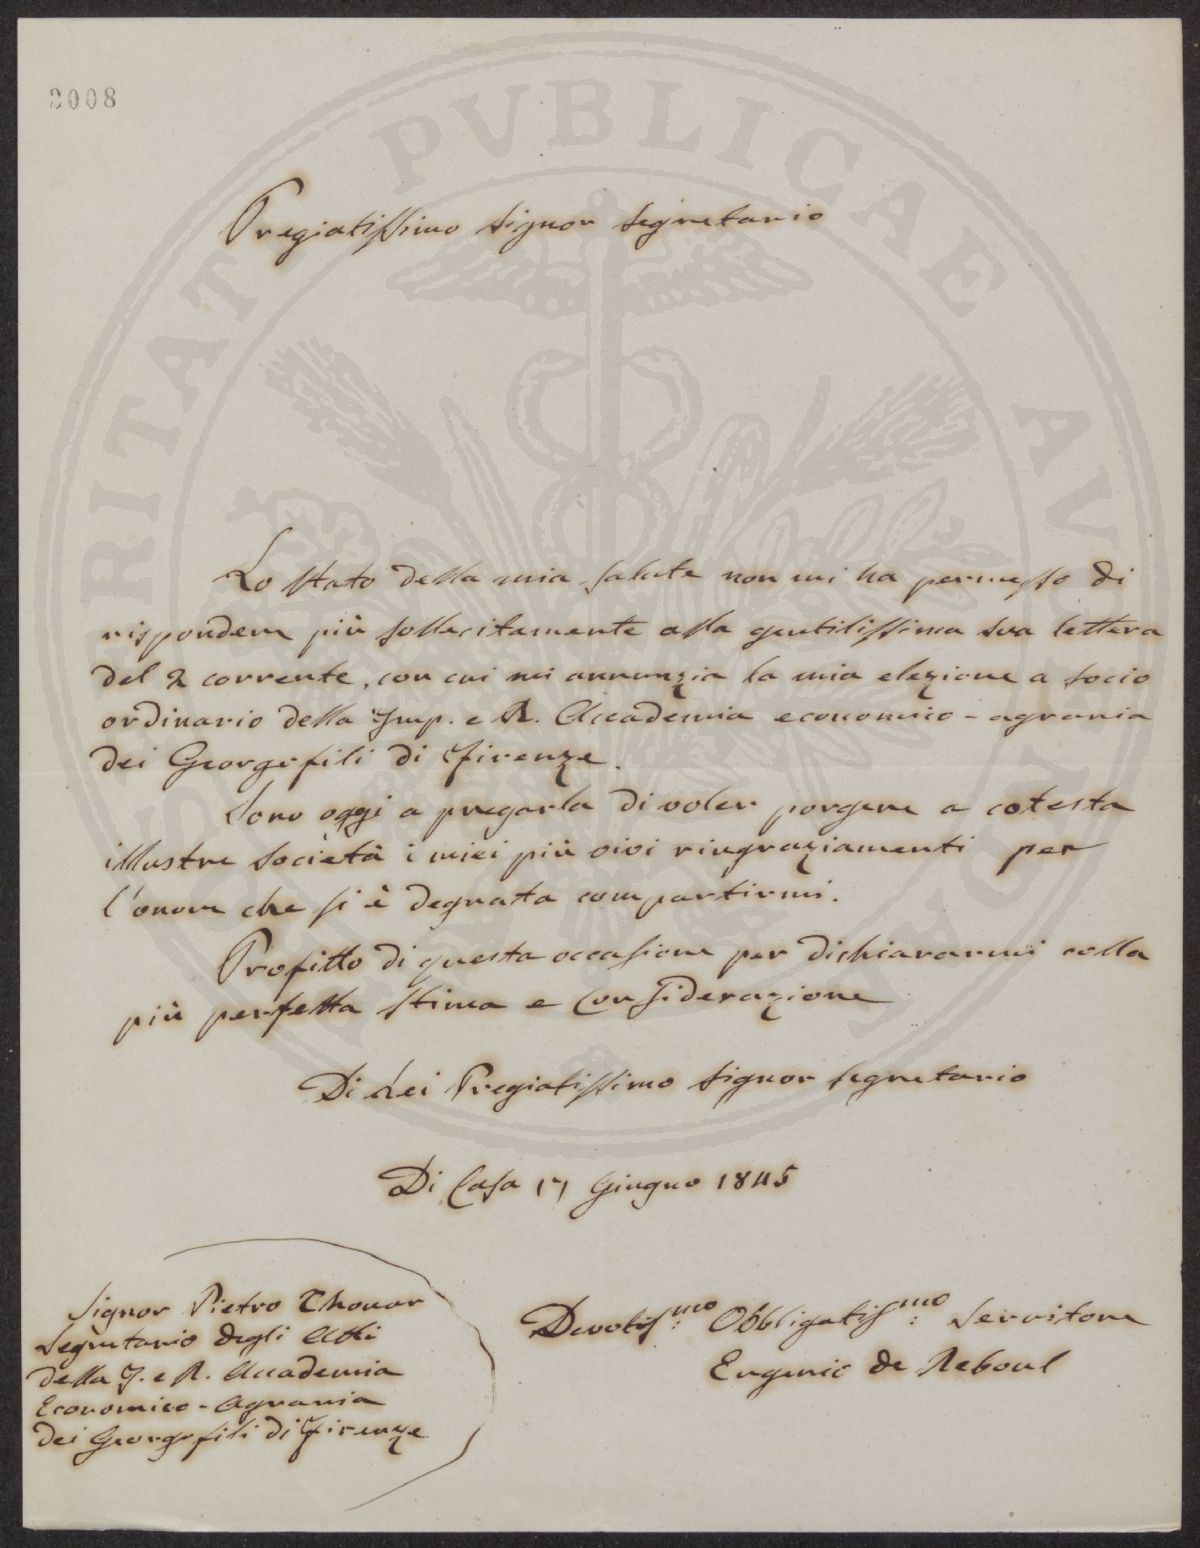 2008
Pregiatissimo Signor Segretario
Lo stato della mia salute non mi ha permesso di
rispondere più sollecitamente alla gentilissima sua lettera
del 2 corrente, con cui mi annunzia la mia elezione a socio
ordinario della Imp. e R. Accademia economico-agraria
dei Georgofili di Firenze.
Sono oggi a pregarla di voler porgere a cotesta
illustre società i miei più vivi ringraziamenti per
l'onore che si è degnata compartirmi.
Profitto di questa occasione per dichiararmi colla
più perfetta stima e considerazione
Di Lei Pregiatissimo Signor Segretario
Di Casa 17 Giugno 1845
Signor Pietro Thouar
Segretario degli Atti
della I. e R. Accademia
Economico-Agraria
dei Georgofili di Firenze
Devotiss:mo Obbligatiss:mo Servitore
Eugenio de Reboul